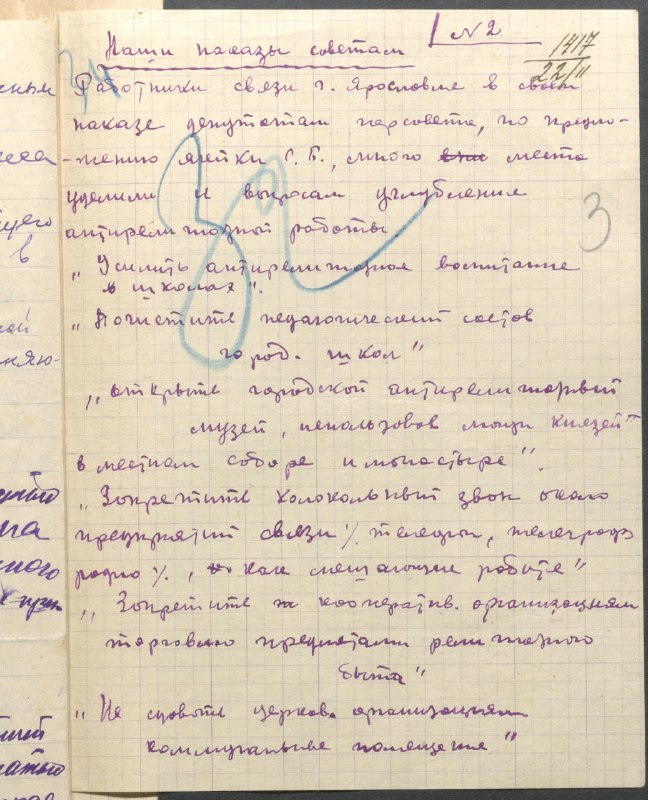 Наши наказы советам
№2
1417
22/II
Работники связи г. Ярославля в своем
наказе депутатам горсовета, по предло-
-жению ячейки С.Б., много места
уделили и вопросам углубления
антирелигиозной работы
3
„Усилить антирелигиозное воспитание
в школах".
„Почистить педагогический состав
город. школ"
„открыть городской антирелигиозный
музей, использовав мощи князей
в местном соборе и монастыре".
„Запретить колокольный звон около
предприятий связи /. телефон, телеграф
радио /., как мешающие работе"
„Запретить кооператив. организациям
торговлю предметами религиозного
быта"
„Не сдавать церков. организациям
коммунальные помещения"